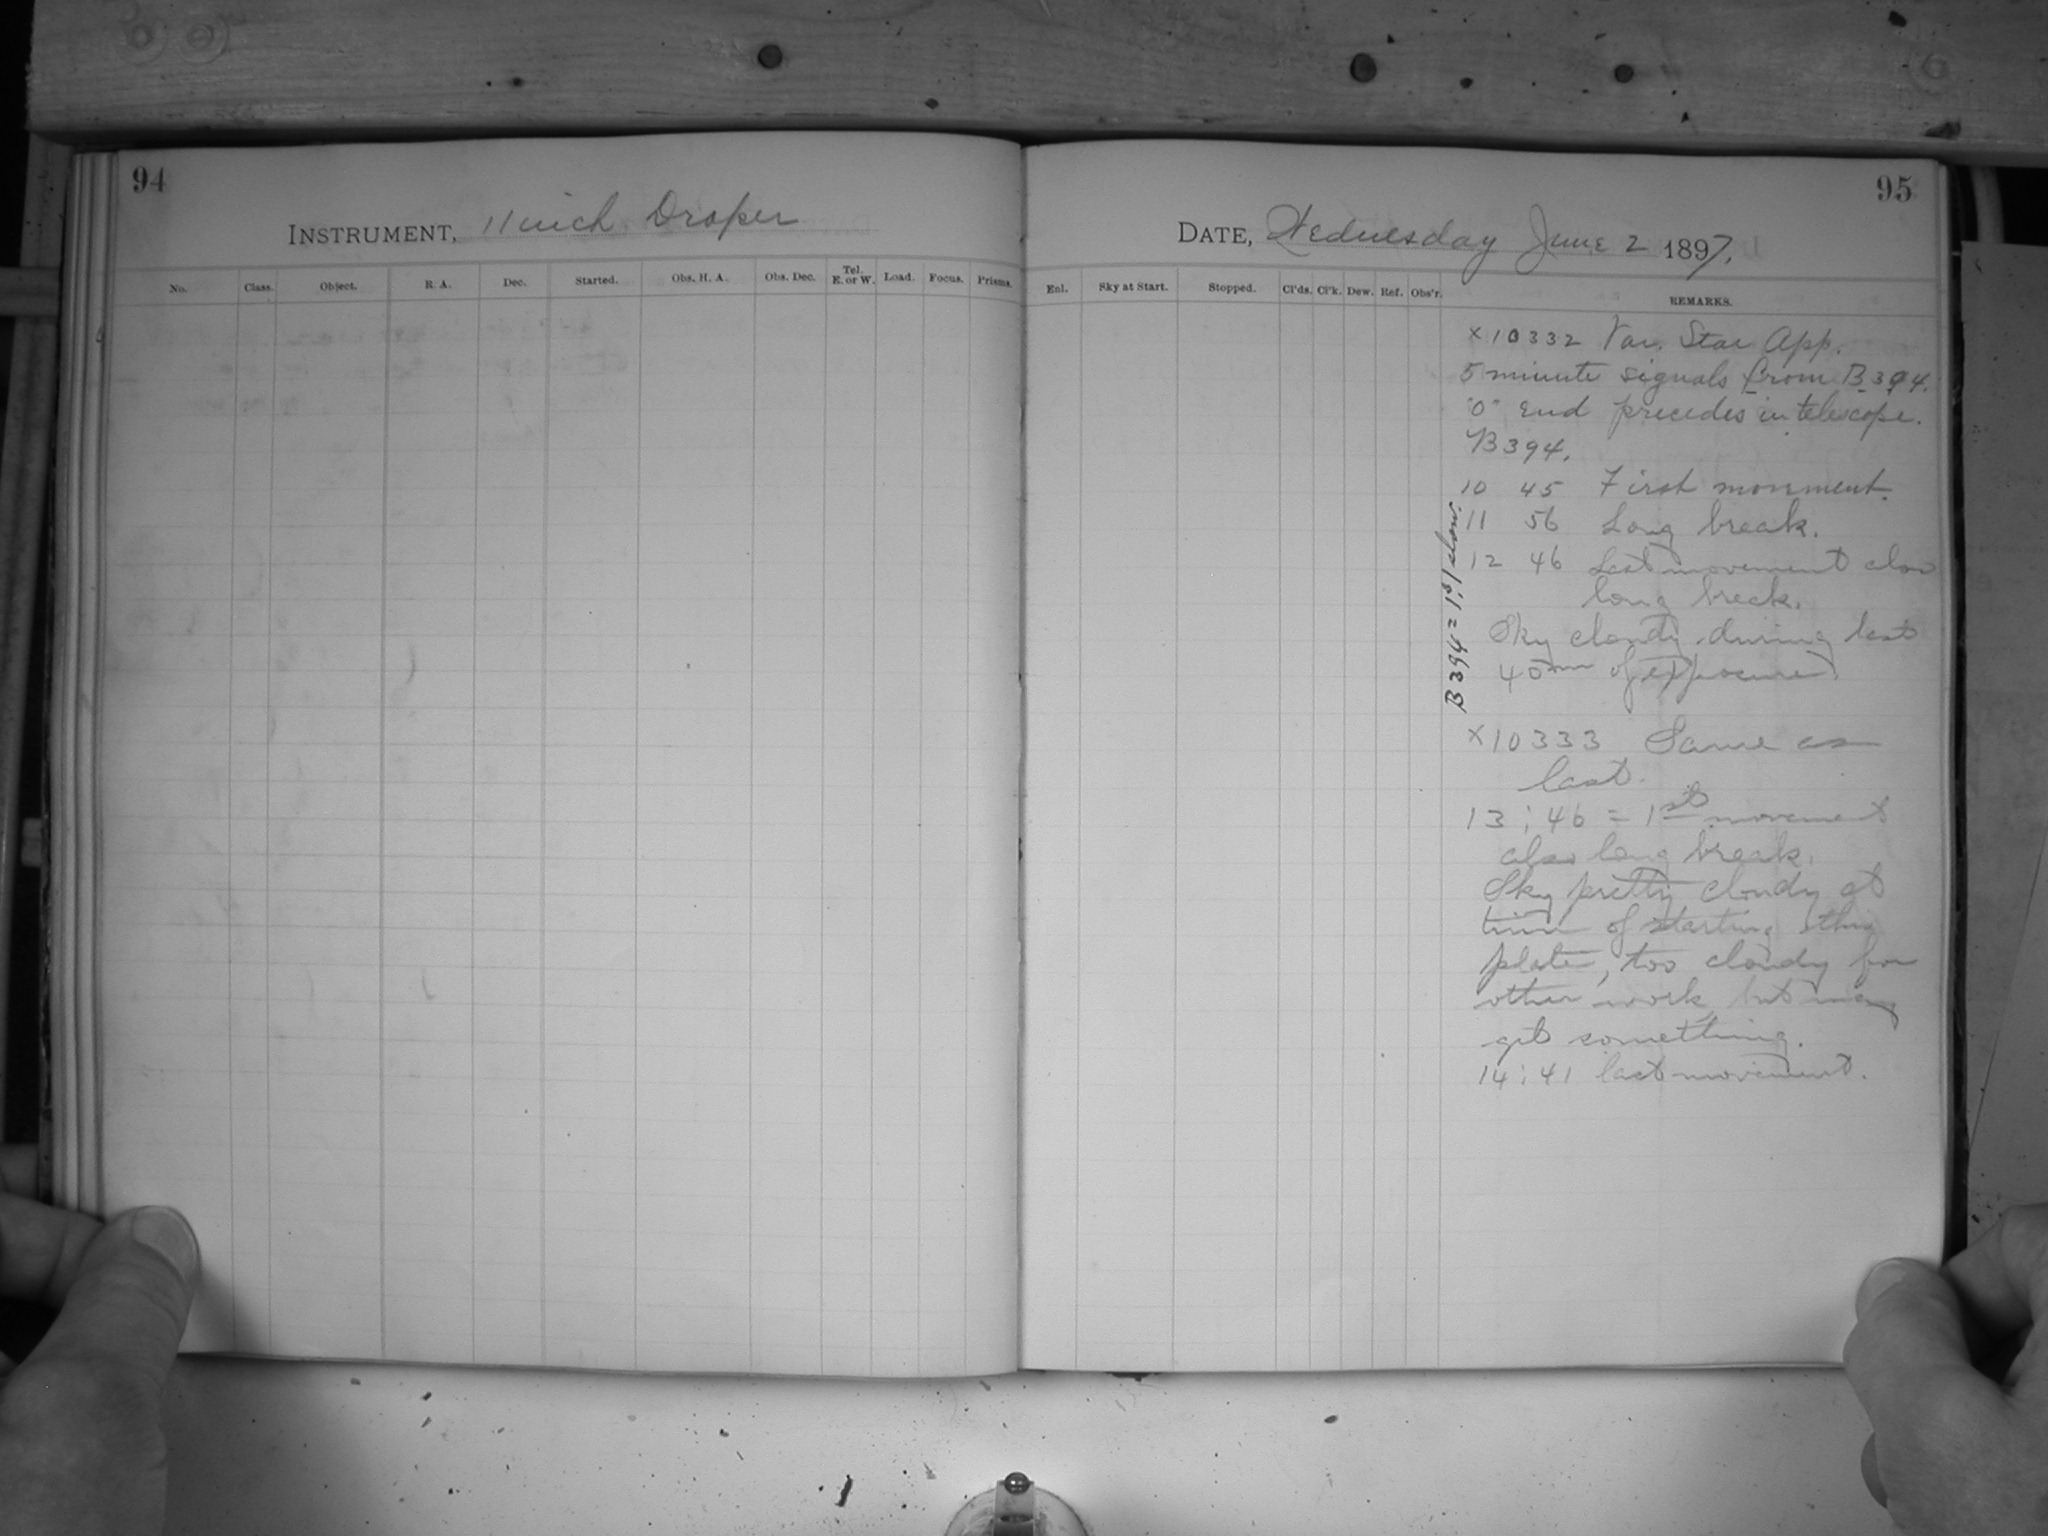 94
INSTRUMENT, 11 inch Draper
No. Class. Object. R. A. Dec. Started. Obs. H. A. Obs. Dec. Tel. E. or W. Load. Focus. Prisms.
95
DATE, Wednesday June 2 1897.
Enl. Sky at Start. Stopped. Cl'ds. Cl'k. Dew. Ref. Obs'r. REMARKS.
X10332 Var. Star App.
5 minute signals from B394.
"0" end precedes in telescope.
B394.
10 45 First movment.
11 56 Long break.
12 46 Last movement also
long break.
Sky cloudy during last
40m of exposure
B394 = 1.s1 slow.
X10333 Same as
last.
13:46 = 1st movement
also long break.
Sky pretty cloudy at
time of starting this
plate, too cloudy for
other work but may
get something.
14:41 last movement.